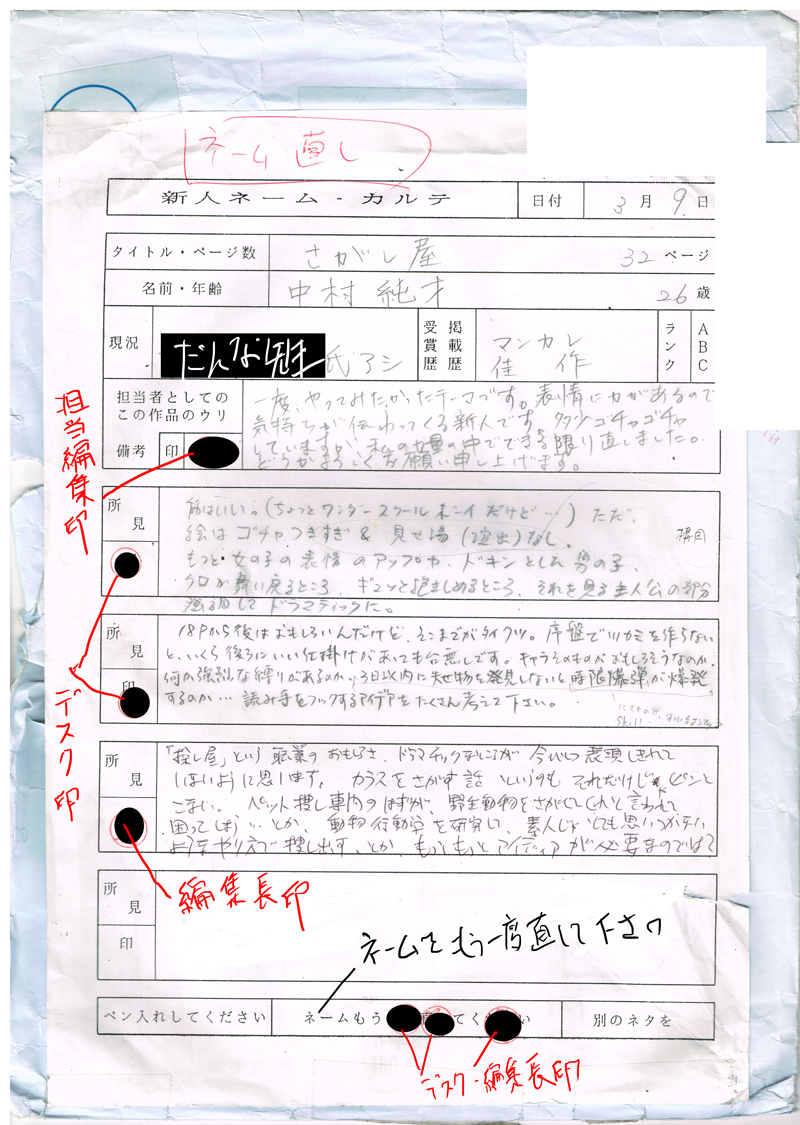 ネーム直し
新人ネーム・カルテ 日付 3月9日
タイトル・ページ数 さがし屋 32ページ
名前・年齢 中村純才 26歳
現況 だんな先生 氏アシ 受賞歴 掲載歴 マンカレ 佳作 ランク ABC
担当者としてのこの作品のウリ
備考 印
一度、やってみたかったテーマです。表情に力があるので
気持ちが伝わってくる新人です。多少ゴチャゴチャ
していますが、私の力量の中でできる限り直しました。
どうかよろしくお願い申し上げます。
担当編集印
所見
筋はいい。(ちょっとワンダースクールホニイだけど…)ただ、
絵はゴチャつきすぎ&見せ場(演出)なし。 構図
もっと女の子の表情のアップや、ドキンとした男の子、
クロが舞い戻るところ、ギュッと抱きしめるところ、それを見る主人公の部分
強調してドラマティックに。
所見
印
18Pから後はおもしろいんだけど、そこまでがタイクツ。序盤でツカミを作らない
と、いくら後ろにいい仕掛けがあっても台無しです。キャラそのものがおもしろそうなのか、
何か強烈な縛りがあるのか(3日以内に失せ物を発見しないと時限爆弾が爆発
するのか… 読み手をフックするアイデアをたくさん考えて下さい。
デスク印
所見
「捜し屋」という職業のおもしろさ、ドラマチックなところが今いち表現しきれて
いないように思います。カラスをさがす話というのもそれだけじゃピンと
こない。ペット捜し専門のはずが、野生動物をさがしてくれと言われて
困ってしまう…とか、動物行動学を研究して、素人じゃとても思いつかない
ようなやり方で捜し出す、とか もっともっとアイディアが必要なのでは?
編集長印
所見
印
ネームをもう一度直して下さい
ペン入れしてください ネームもう てく い 別のネタを
デスク・編集長印